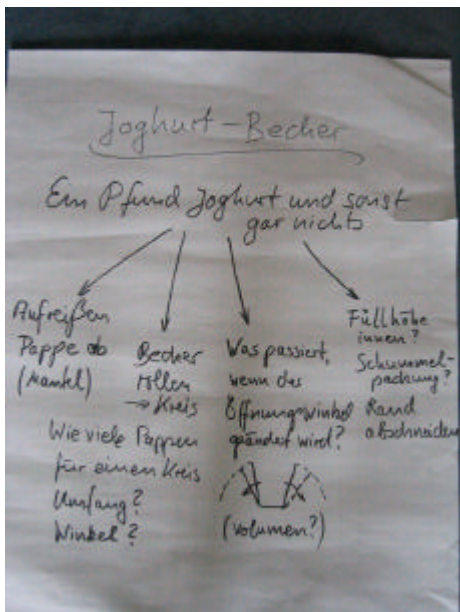 Joghurt-Becher
Ein Pfund Joghurt und sonst
gar nichts
Aufreißen
Pappe ab
(Mantel)
Becher
rollen
→ Kreis
Wie viele Pappen
für einen Kreis
Umfang?
Winkel?
Was passiert,
wenn der
Öffnungswinkel
geändert wird?
(Volumen?)
Füllhöhe
innen?
Schummel-
packung?
Rand
abschneiden